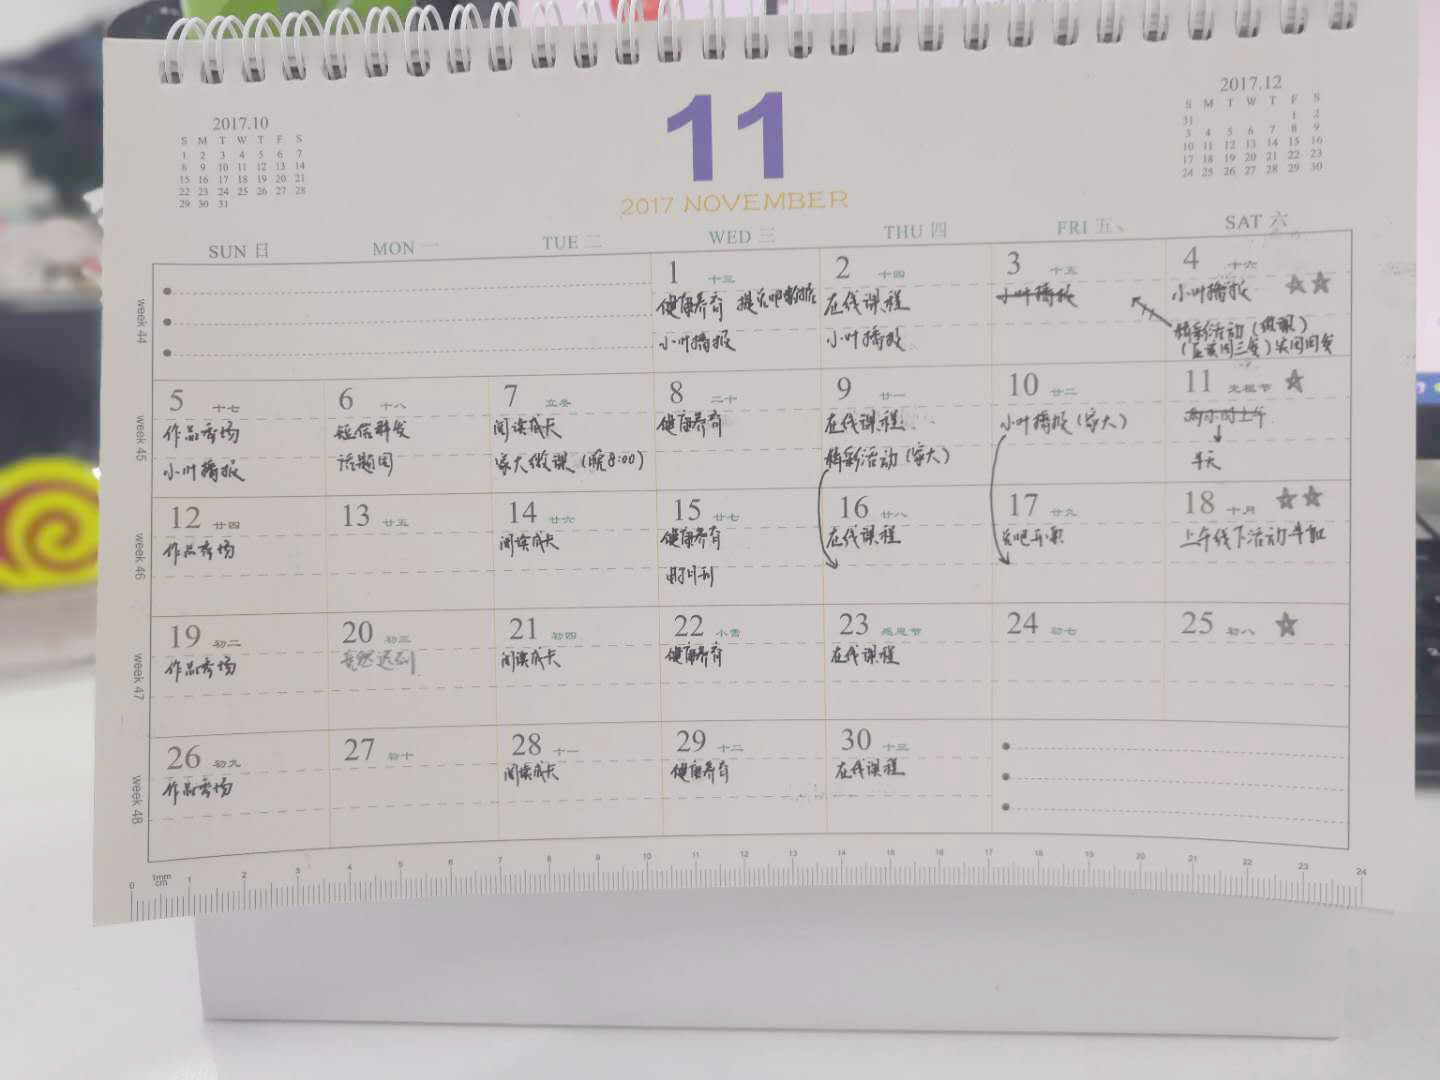 2017.10
S M T W T F S
1 2 3 4 5 6 7
8 9 10 11 12 13 14
15 16 17 18 19 20 21
22 23 24 25 26 27 28
29 30 31
11
2017 NOVEMBER
2017.12
S M T W T F S
31 1 2
3 4 5 6 7 8 9
10 11 12 13 14 15 16
17 18 19 20 21 22 23
24 25 26 27 28 29 30
SUN 日 MON 一 TUE 二 WED 三 THU 四 FRI 五 SAT 六
week 44
1 十三
健康养育
小叶播报
2 十四
在线课程
小叶播报
3 十五
小叶播报
4 十六
小叶播报
精彩活动
week 45
5 十七
作品秀场
小叶播报
6 十八
短信群发
话题团
7 立冬
阅读成长
家大微课（晚8:00）
8 二十
健康养育
9 廿一
在线课程
精彩活动（家大）
10 廿二
小叶播报（家大）
11 光棍节
半天
week 46
12 廿四
作品秀场
13 廿五
14 廿六
阅读成长
15 廿七
健康养育
16 廿八
在线课程
17 廿九
18 十月
上午线下活动
week 47
19 初二
作品秀场
20 初三
竟然迟到
21 初四
阅读成长
22 小雪
健康养育
23 感恩节
在线课程
24 初七
25 初八
week 48
26 初九
作品秀场
27 初十
28 十一
阅读成长
29 十二
健康养育
30 十三
在线课程
0 1mm cm 1 2 3 4 5 6 7 8 9 10 11 12 13 14 15 16 17 18 19 20 21 22 23 24